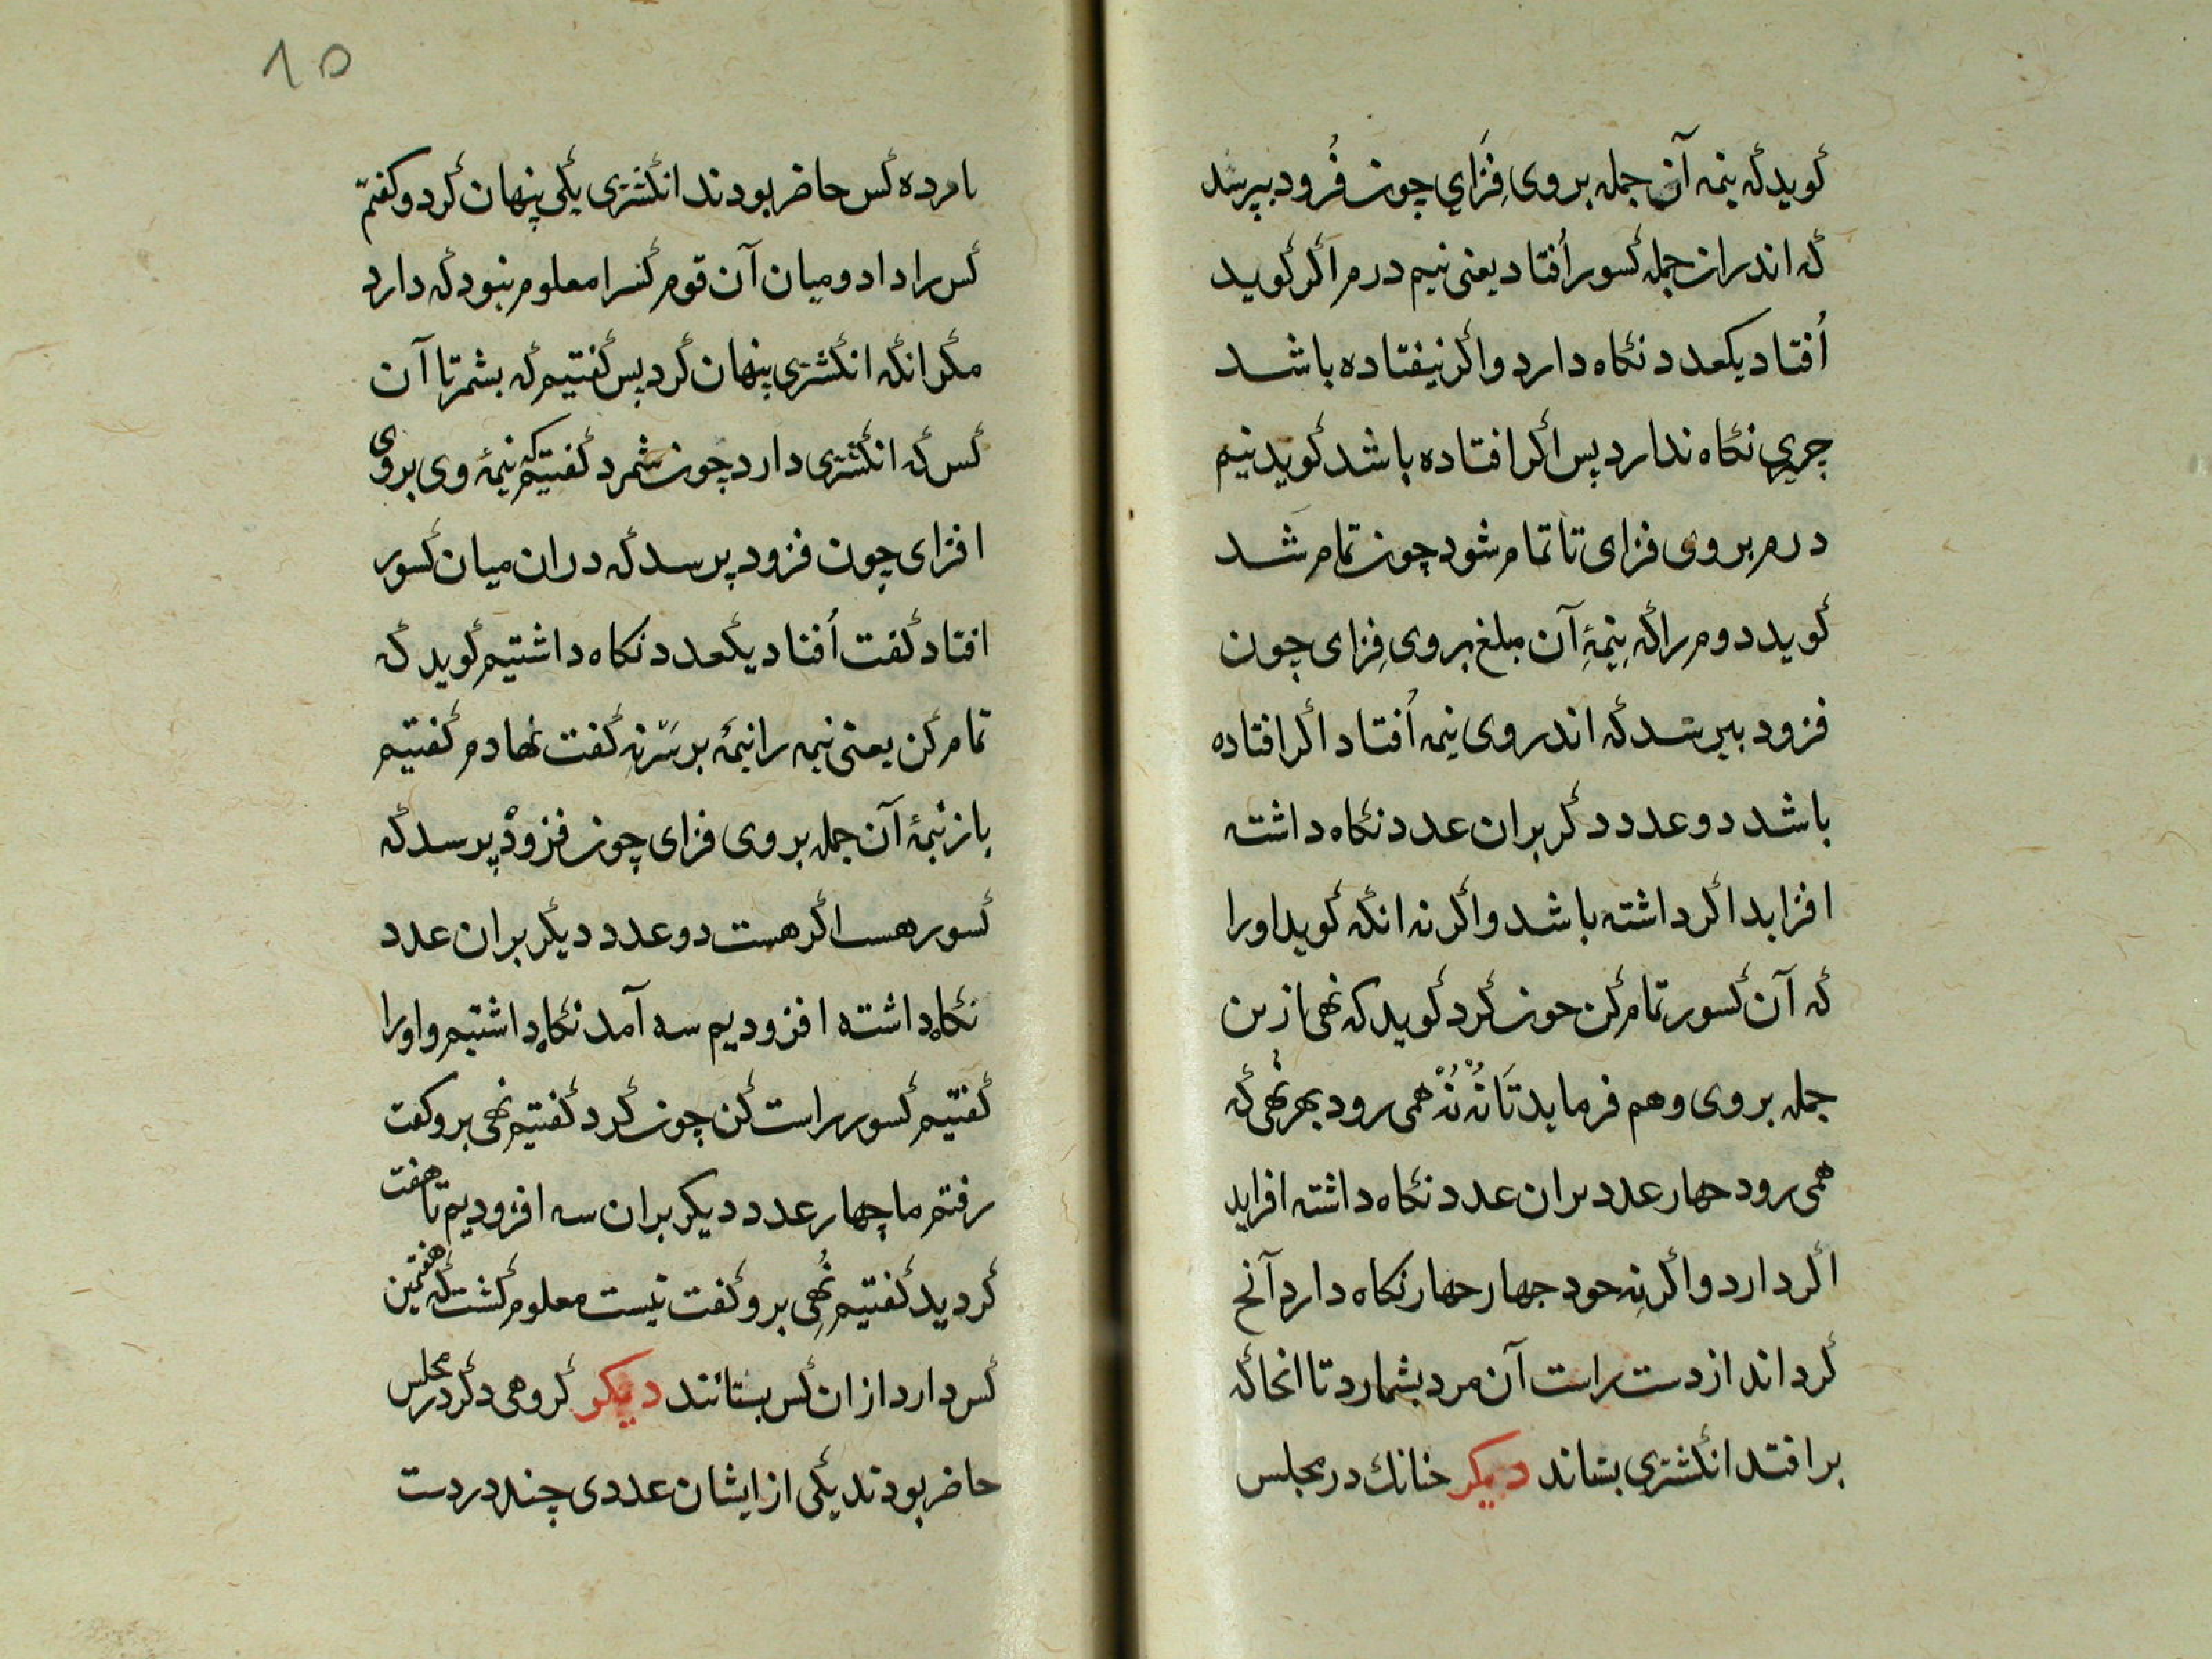 کوید که نیمه آن جمله بر وی فِزَاي چون فُزود بپرسد
که اندران جمله کسور اُفتاد یعنی نیم درم اکر کوید
اُفتاد یکعدد نکاه دارد واکر نیفتاده باشد
چیزی نکاه ندارد پس اکر افتاده باشد کوید نیم
درم بر وی فزای تا تمام شود چون تمام شد
کوید دوم را که نِیمۀِ آن مبلغ بر وی فِزای چون
فزود بپرسد که اندر وی نیمه اُفتاد اکر افتاده
باشد دو عدد دکر بران عدد نکاه داشته
افزاید اکر داشته باشد واکر نه انکه کوید اورا
که آن کسور تمام کن حون کرد کوید که نهی ازین
جمله بر وی وهم فرماید تَا نُهْ نُهْ همی رود بهر نُهی که
همی رود حهار عدد بران عدد نکاه داشته افزاید
اکر دارد واکر نِه خود جهار حهار نکاه دارد آنح
کرد اند از دست راست آن مرد بشمارد تا انجا که
برافتد انکشتری بستاند دیکر خنانك در مجلس
۱۵
ما مرد ده کس حاضر بودند انکشتری یکی پنهان کرد و کفتم
کس را داد و میان آن قوم کسرا معلوم نبود که دارد
مکر انکه انکشتری پنهان کرد پس کفتیم که بشمر تا آن
کس که انکشتری دارد چون شمرد کفتیم که نیمۀ وی بروی
افزای چون فزود پرسد که دران میان کسور
افتاد کفت اُفتاد یکعدد نکاه داشتیم کوید که
تمام کن یعنی نیمه را نیمۀ بر سَرّ نِه کفت نهادم کفتیم
باز نیمۀ آن جمله بر وی فزای چون فزودْ پرسد که
کسور هست اکر هست دو عدد دیکر بران عدد
نکاه داشته افزودیم سه آمد نکاه داشتیم و اورا
کفتیم کسور راست کن چون کرد کفتیم نهی برو کفت
رفتم ما چهار عدد دیکر بران سه افزودیم تا هفت
کردید کفتیم نُهِی برو کفت نیست معلوم کشت که هفتمین
کس دارد از ان کس بستانند دیکر کروهی دکر در مجلس
حاضر بودند یکی از ایشان عددی چند در دست